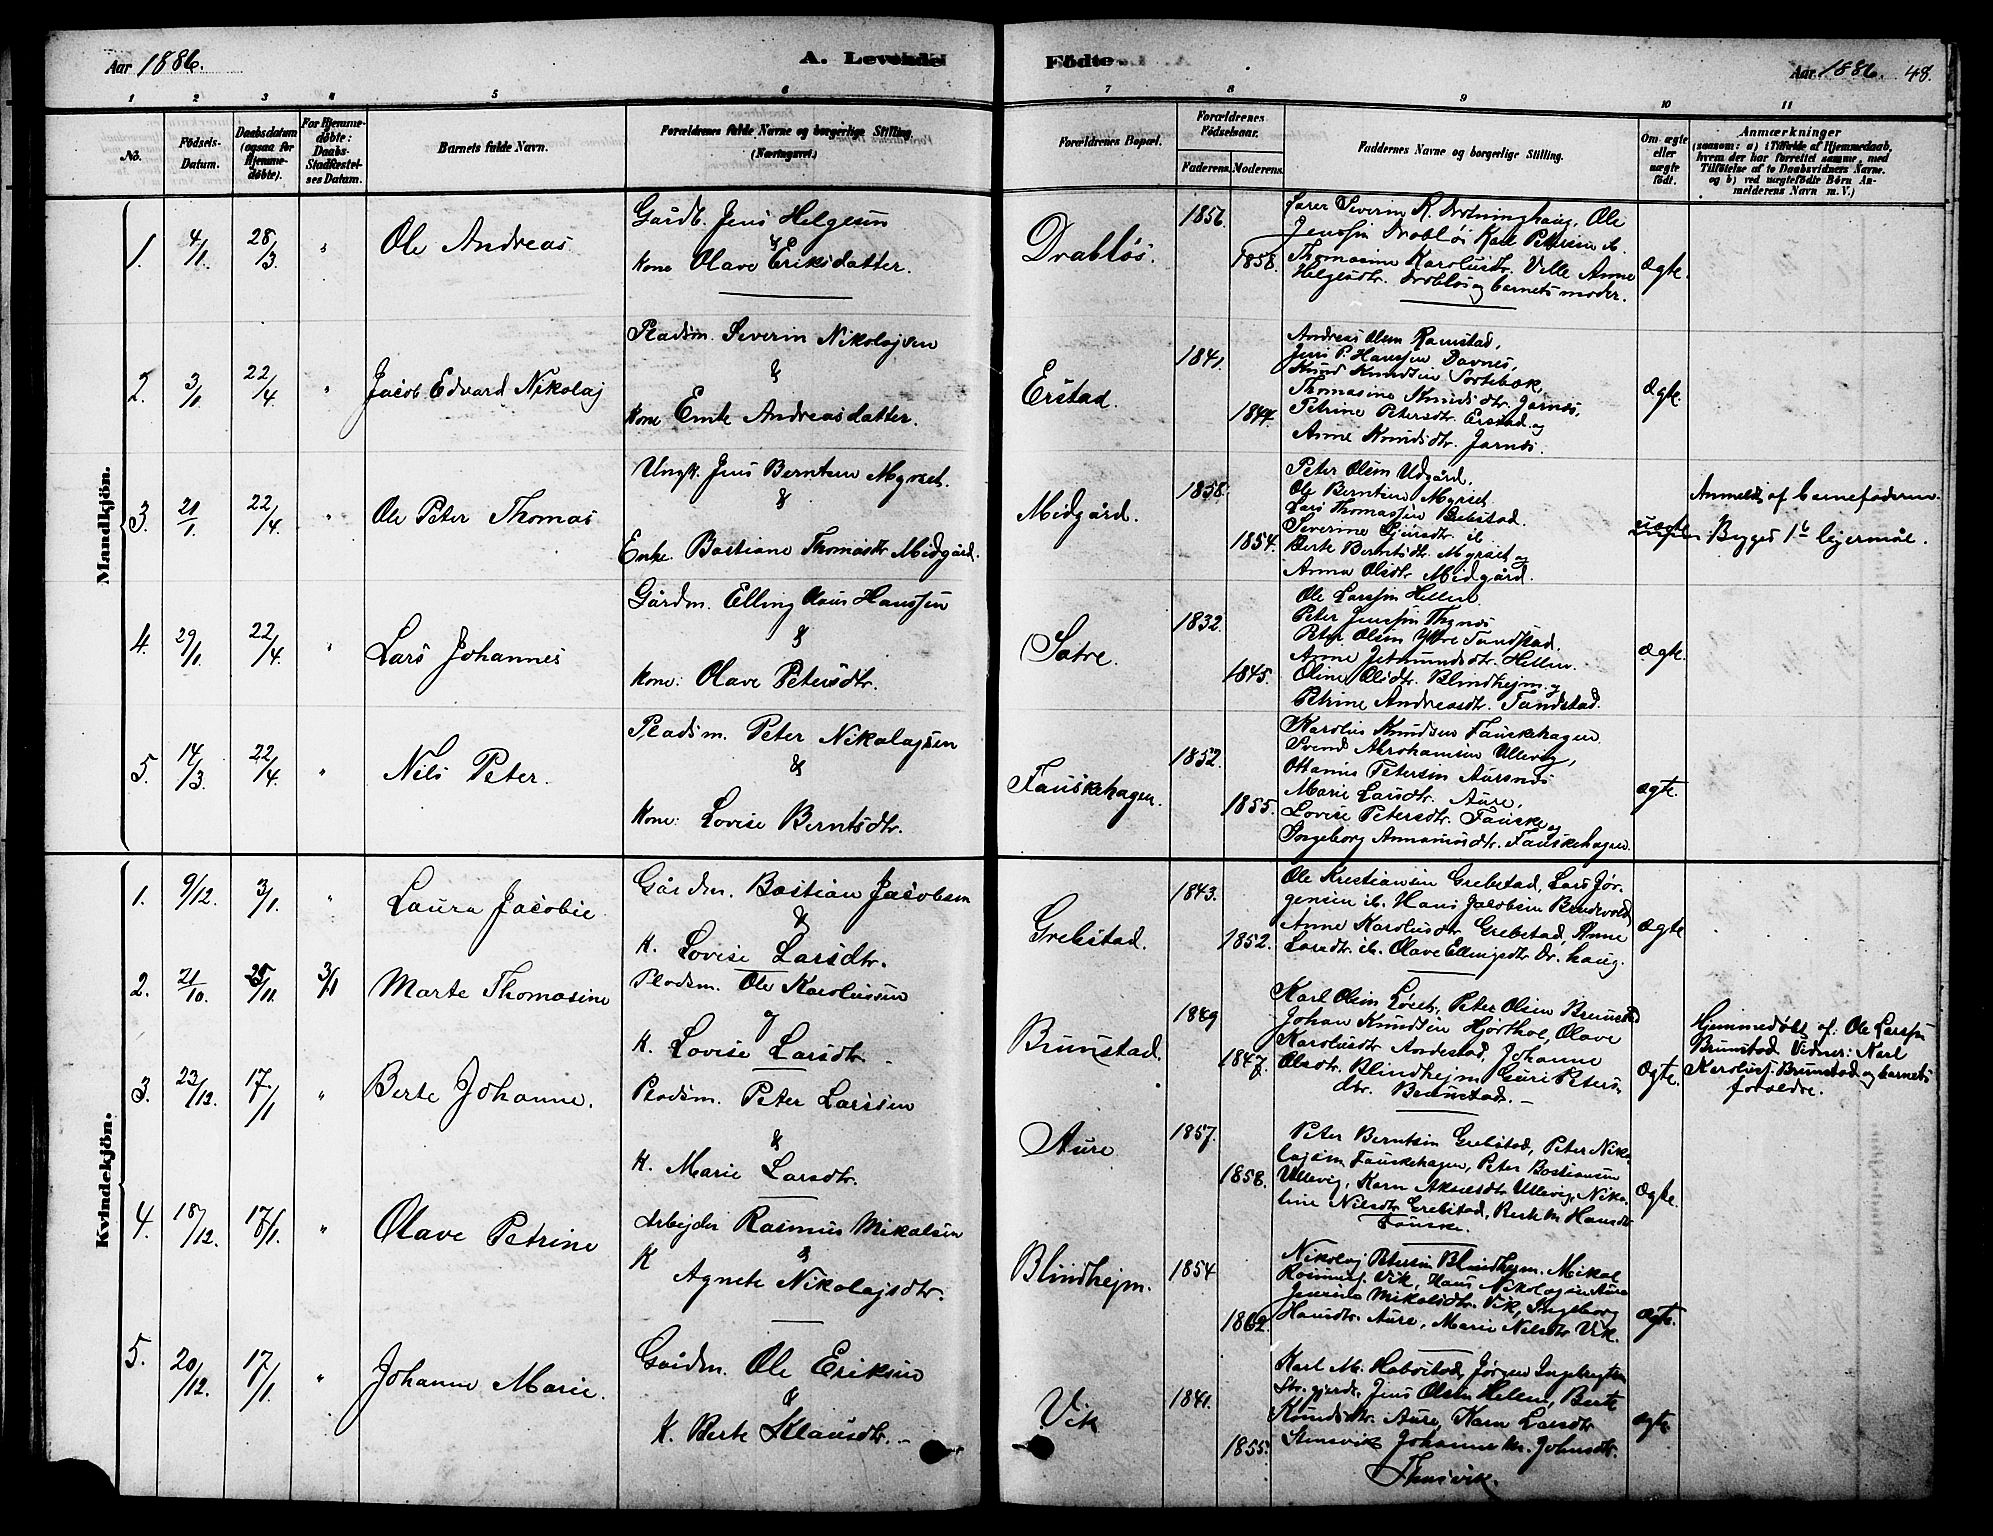 Aar 1886.
A. Levende
Födte.
Aar 1886. 48.
1 2 3 4 5 6 7 8 9 10 11
No.
Födsels-
Datum.
Daabsdatum
(ogsaa for
Hjemme-
döbte).
For Hjemme-
døbte:
Daabs-
Stadfæstel-
ses Datum.
Barnets fulde Navn.
Forældrenes fulde Navne og borgerlige Stilling.
(Næringsvei.)
Forældrenes Bopæl.
Forældrenes
Födselsaar.
Faderens. Moderens.
Faddernes Navne og borgerlige Stilling.
Om ægte
eller
uægte
født.
Anmærkninger
(saasom: a) i Tilfælde af Hjemmedaab,
hvem der har forrettet samme, med
Tilföielse af to Daabsvidners Navne.
og b) ved uægtefödte Börn An-
melderens Navn m. V.)
Mandkjön.
1. 4/1 28/3 " Ole Andreas
Gårdb. Jens Helgesen
&
kone Olave Eriksdatter.
Drabløs. 1856 1858.
Severin K. Drotninghaug, Ole
Jenssen Drabløs Karl Petersen ib.
Thomasine Karolusdtr. Velle Anne
Helgesdtr. Drabløs og barnets moder.
Ægte.
2. 3/1 22/4 " Jacob Edvard Nikolaj
Pladsm. Severin Nikolajsen
&
kone Emte Andreasdatter.
Erstad. 1841. 1844.
Andreas Olsen Ramstad,
Jens P. Hanssen Davnes,
Knud Knudsen Sortebæk,
Thomasine Knudsdtr. Jarnes,
Petrine Petersdtr. Erstad og
Anne Knudsdtr. Jarnes.
Ægte.
3. 21/1 22/4 " Ole Peter Thomas
Ungk. Jens Berntsen Myrset.
&
Enke Bastiane Thomasdtr Midgård.
Midgård. 1858. 1854.
Peter Olsen Udgård.
Ole Berntsen Myrset
Lars Thomassen Grebstad.
Severine Sjursdtr. ib.
Berte Berntsdtr. Myrset og
Anna Olsdtr. Midgård.
uægte
Anmeldt af barnefaderen.
Begges 1ste lejermål.
4. 29/1 22/4 " Lars Johannes
Gårdm. Elling Claus Hanssen
&
kone: Olave Petersdtr.
Satre. 1832. 1845.
Ole Larssen Hellen.
Peter Jenssen Thynes
Peter Olsen Ytre Tandstad.
Anne Jetmundsdtr. Hellen.
Oline Olsdtr. Blindhejm og
Petrine Andreasdtr. Tandstad.
Ægte.
5. 14/3 22/4 " Nils Peter.
Pladsm. Peter Nikolajsen
&
kone: Lovise Berntsdtr.
Fauskehagen. 1852. 1855.
Karolus Knudsen Fauskehagen.
Svend Abrahamsen Ullevig,
Ottanius Petersen Aursnes
Marie Larsdtr. Aure,
Lovise Petersdtr. Fauske og
Ingeborg Annaniasdtr. Fauskehagen.
Ægte.
Kvindekjön.
1. 9/12. 3/1. " Laura Jacobie
Gårdm. Bastian Jacobsen
&
K. Lovise Larsdtr.
Grebstad. 1843. 1852.
Ole Kristiansen Grebstad, Lars Jør-
gensen ib. Hans Jacobsen Brudevold,
Anne Karolusdtr Grebstad, Anne
Larsdtr. ib. Olave Ellingsdtr Dr. haug.
Ægte
2. 21/10. 25/11. 3/1 Marte Thomasine
Pladsm. Ole Karolussen
og
K. Lovise Larsdtr.
Brunstad. 1849 1847.
Karl Olsen Løset, Peter Olsen Brunstad
Johan Knudsen Hjorthol, Olave
Karolusdtr Andestad, Johanne
Olsdtr. Blindhejm Guri Peters-
dtr. Brunstad.
Ægte.
Hjemmedøbt af: Ole Larssen
Brunstad Vidner: Karl
Karolusf. Brunstad og barnets
forældre.
3. 23/12. 17./1 " Berte Johanne.
Pladsm. Peter Larssen
&
K. Marie Larsdtr.
Aure 1857. 1858.
Peter Berntsen Grebstad, Peter Niko-
lajsen Fauskehagen, Peter Bastiansen
Ullevig, Karn Akselsdtr Ullevig, Niko-
line Nilsdtr Grebstad, Berte M. Hansdtr
Fauske.
Ægte.
4. 18/12. 17/1. " Olave Petrine
Arbejder Rasmus Mikalsen
&
K Agnete Nikolajsdtr.
Blindhejm. 1854 1862.
Nikolaj Petersen Blindhejm. Mikal
Rasmusf. Vik, Hans Nikolajsen Aure
Jensine Mikalsdtr. Vik, Ingeborg
Hansdtr. Aure, Marie Nilsdtr Vik.
Ægte.
5. 20/12. 17/1. " Johanne Marie.
Gårdm. Ole Eriksen
&
K. Berte Klausdtr.
Vik 1841. 1855.
Karl M. Habostad, Jørgen Ingebrigtsen
Jens Olsen Hellen, Berte
Knudsdtr. Aure, Karn Larsdtr
Stensvik Johanne M. Johnsdtr.
Stensvik.
Ægte